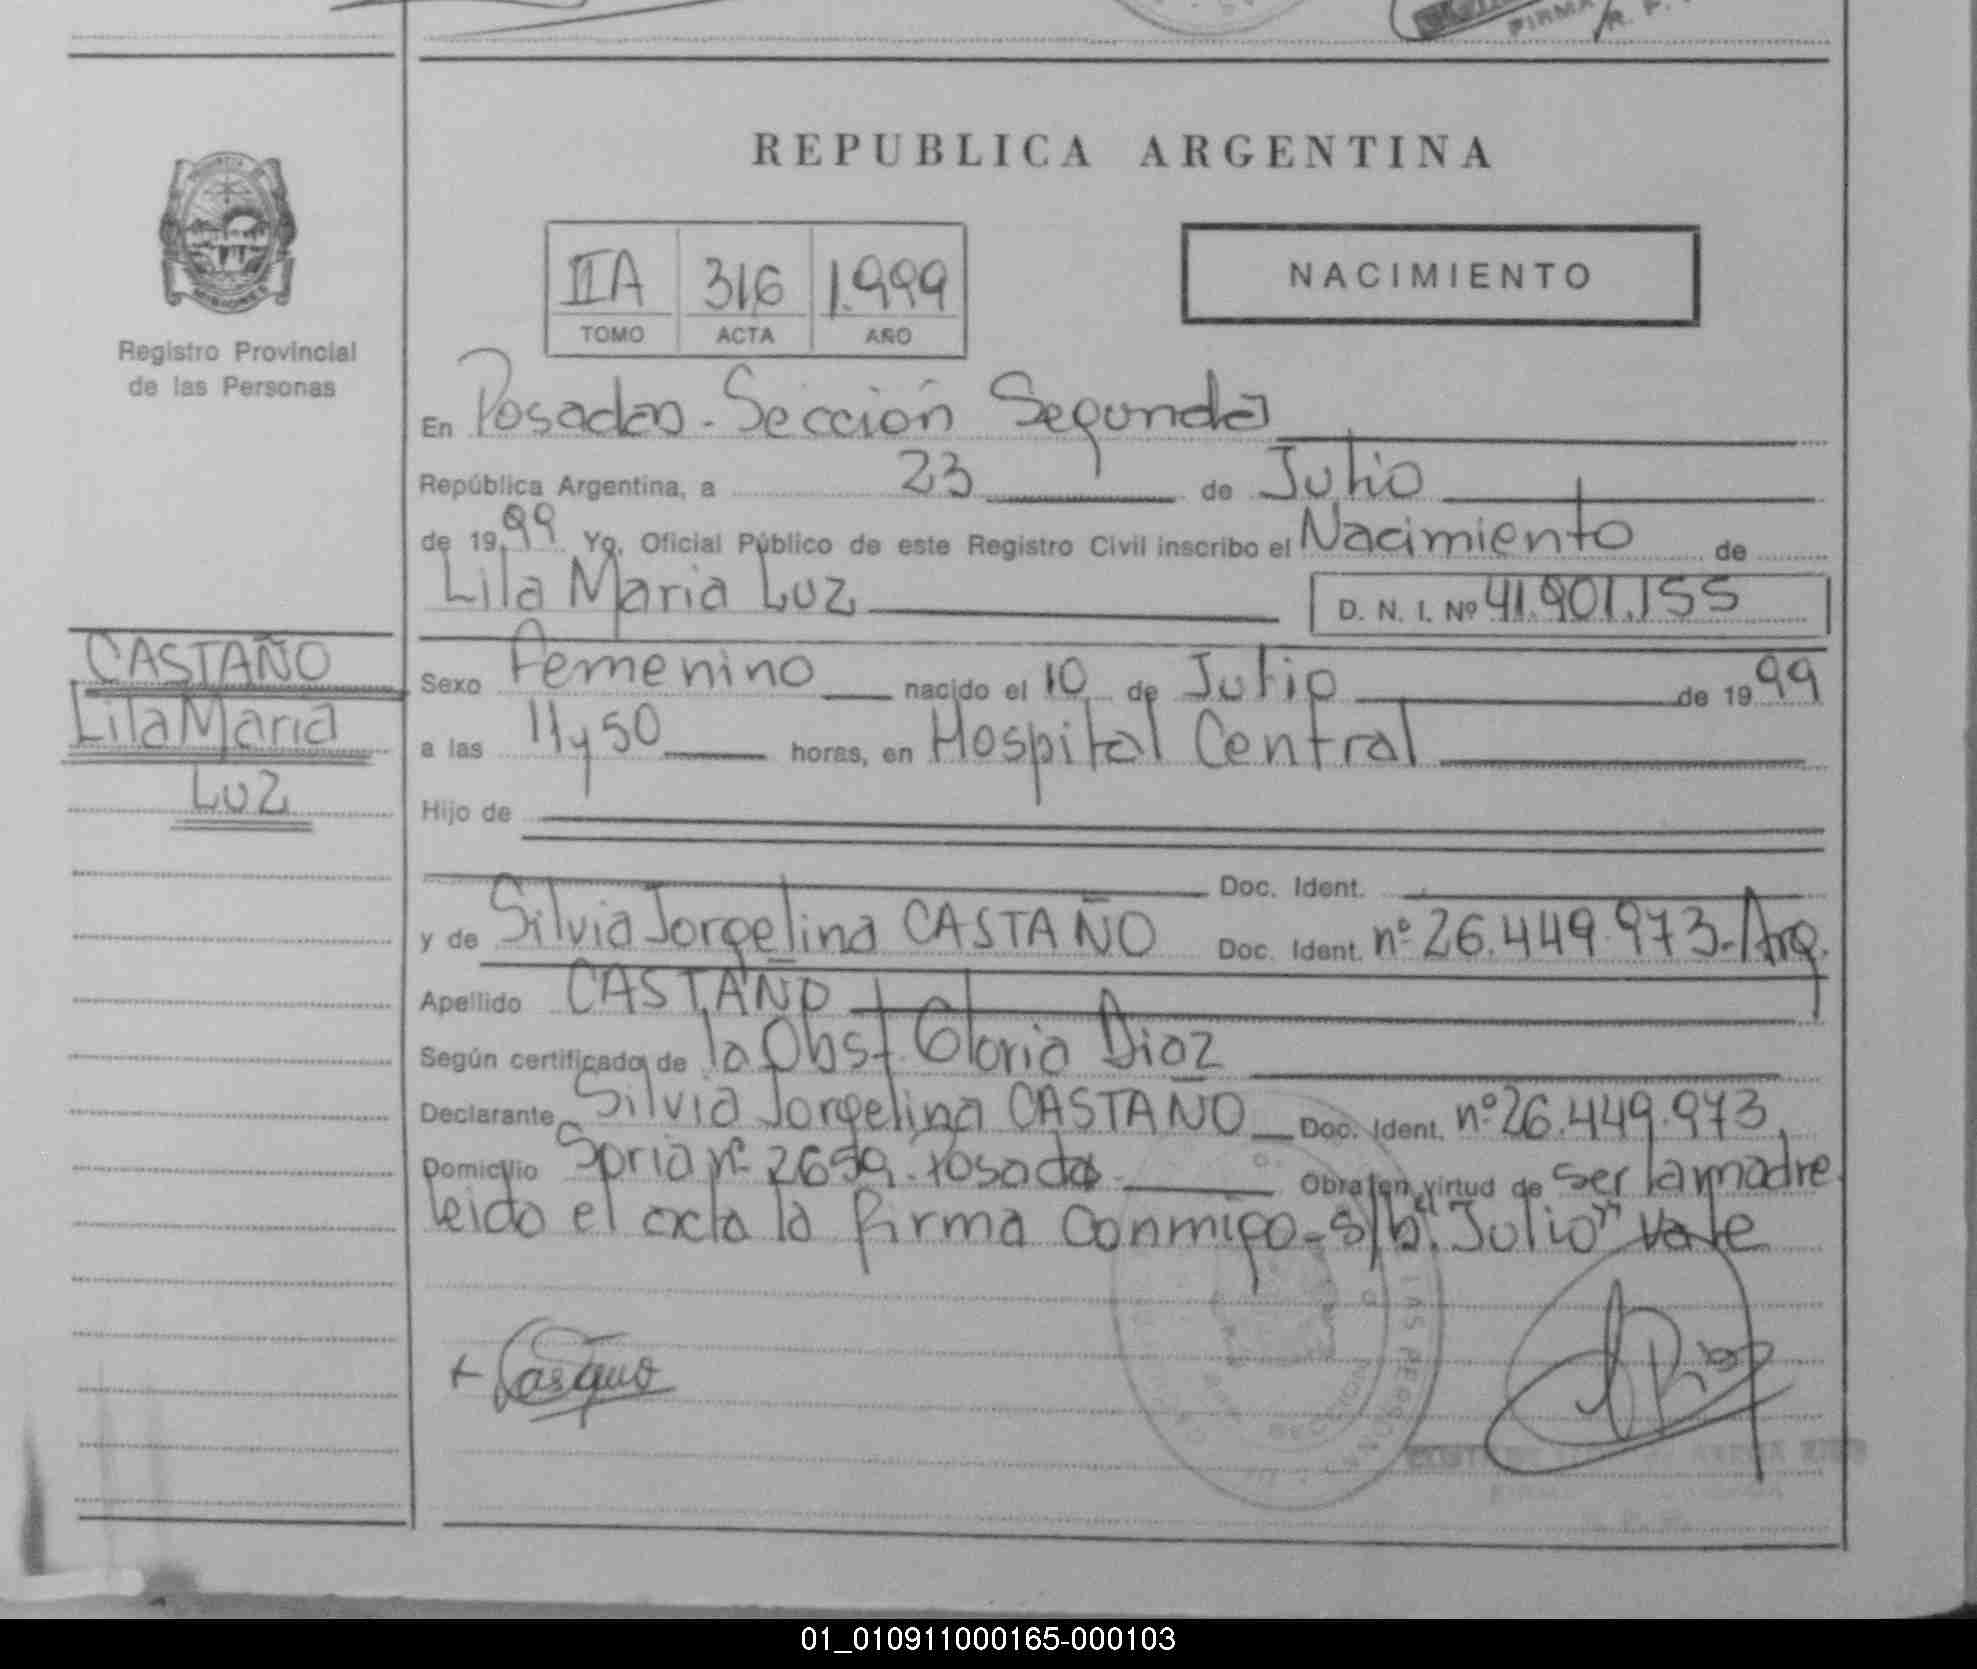 FIRMA
R. P.
REPUBLICA ARGENTINA
IIA 316 1.999
TOMO ACTA AÑO
NACIMIENTO
MISIONES
Registro Provincial
de las Personas
En Posadas - Sección Segunda
República Argentina, a 23 de Julio
de 1999 Yo, Oficial Público de este Registro Civil inscribo el Nacimiento de
Lila Maria Luz D. N. I. Nº 41.901.155
CASTAÑO
Lila Maria
Luz
Sexo Femenino nacido el 10 de Julio de 1999
a las 11 y 50 horas, en Hospital Central
Hijo de
Doc. Ident.
y de Silvia Jorgelina CASTAÑO Doc. Ident. nº 26.449.973- Arg.
Apellido CASTAÑO
Según certificado de la Obst Gloria Diaz
Declarante Silvia Jorgelina CASTAÑO Doc. Ident. nº 26.449.973,
Domicilio Soria nº 2659. Posadas Obra en virtud de ser la madre
leido el acta la firma conmigo - s/b. "Julio" vale
+ Castaño
01_010911000165-000103